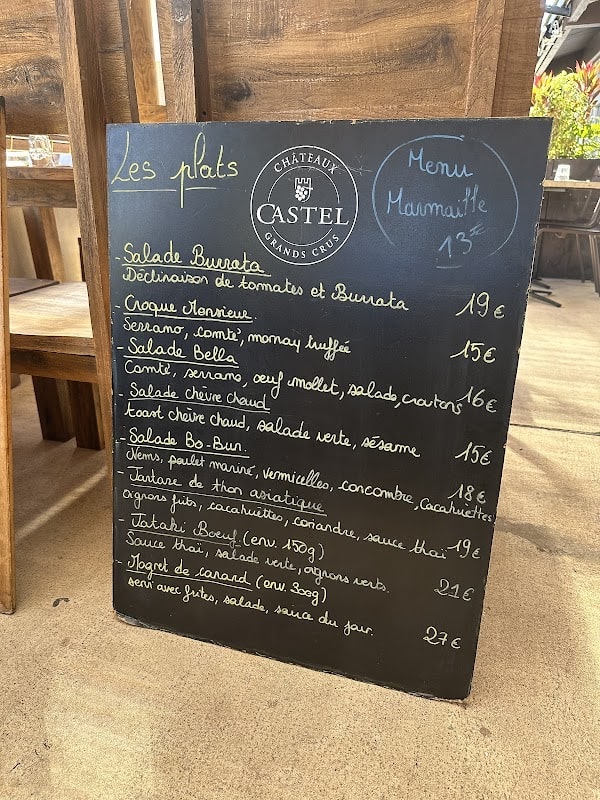 Les plats
CHÂTEAUX
CASTEL
GRANDS CRUS
Menu
Marmaille
13€
- Salade Burrata
Déclinaison de tomates et Burrata 19€
- Croque Monsieur.
Serrano, comté, mornay truffée 15€
- Salade Bella
Comté, serrano, oeuf mollet, salade, croutons 16€
- Salade chèvre chaud
toast chèvre chaud, salade verte, sésame 15€
- Salade Bo-Bun.
Nems, poulet mariné, vermicelles, concombre, cacahuètes 18€
- Tartare de thon asiatique
oignons frits, cacahuètes, coriandre, sauce thaï 19€
- Tataki Boeuf (env. 150g)
Sauce thaï, salade verte, oignons verts. 21€
- Magret de canard (env. 300g)
servi avec frites, salade, sauce du jour. 27€